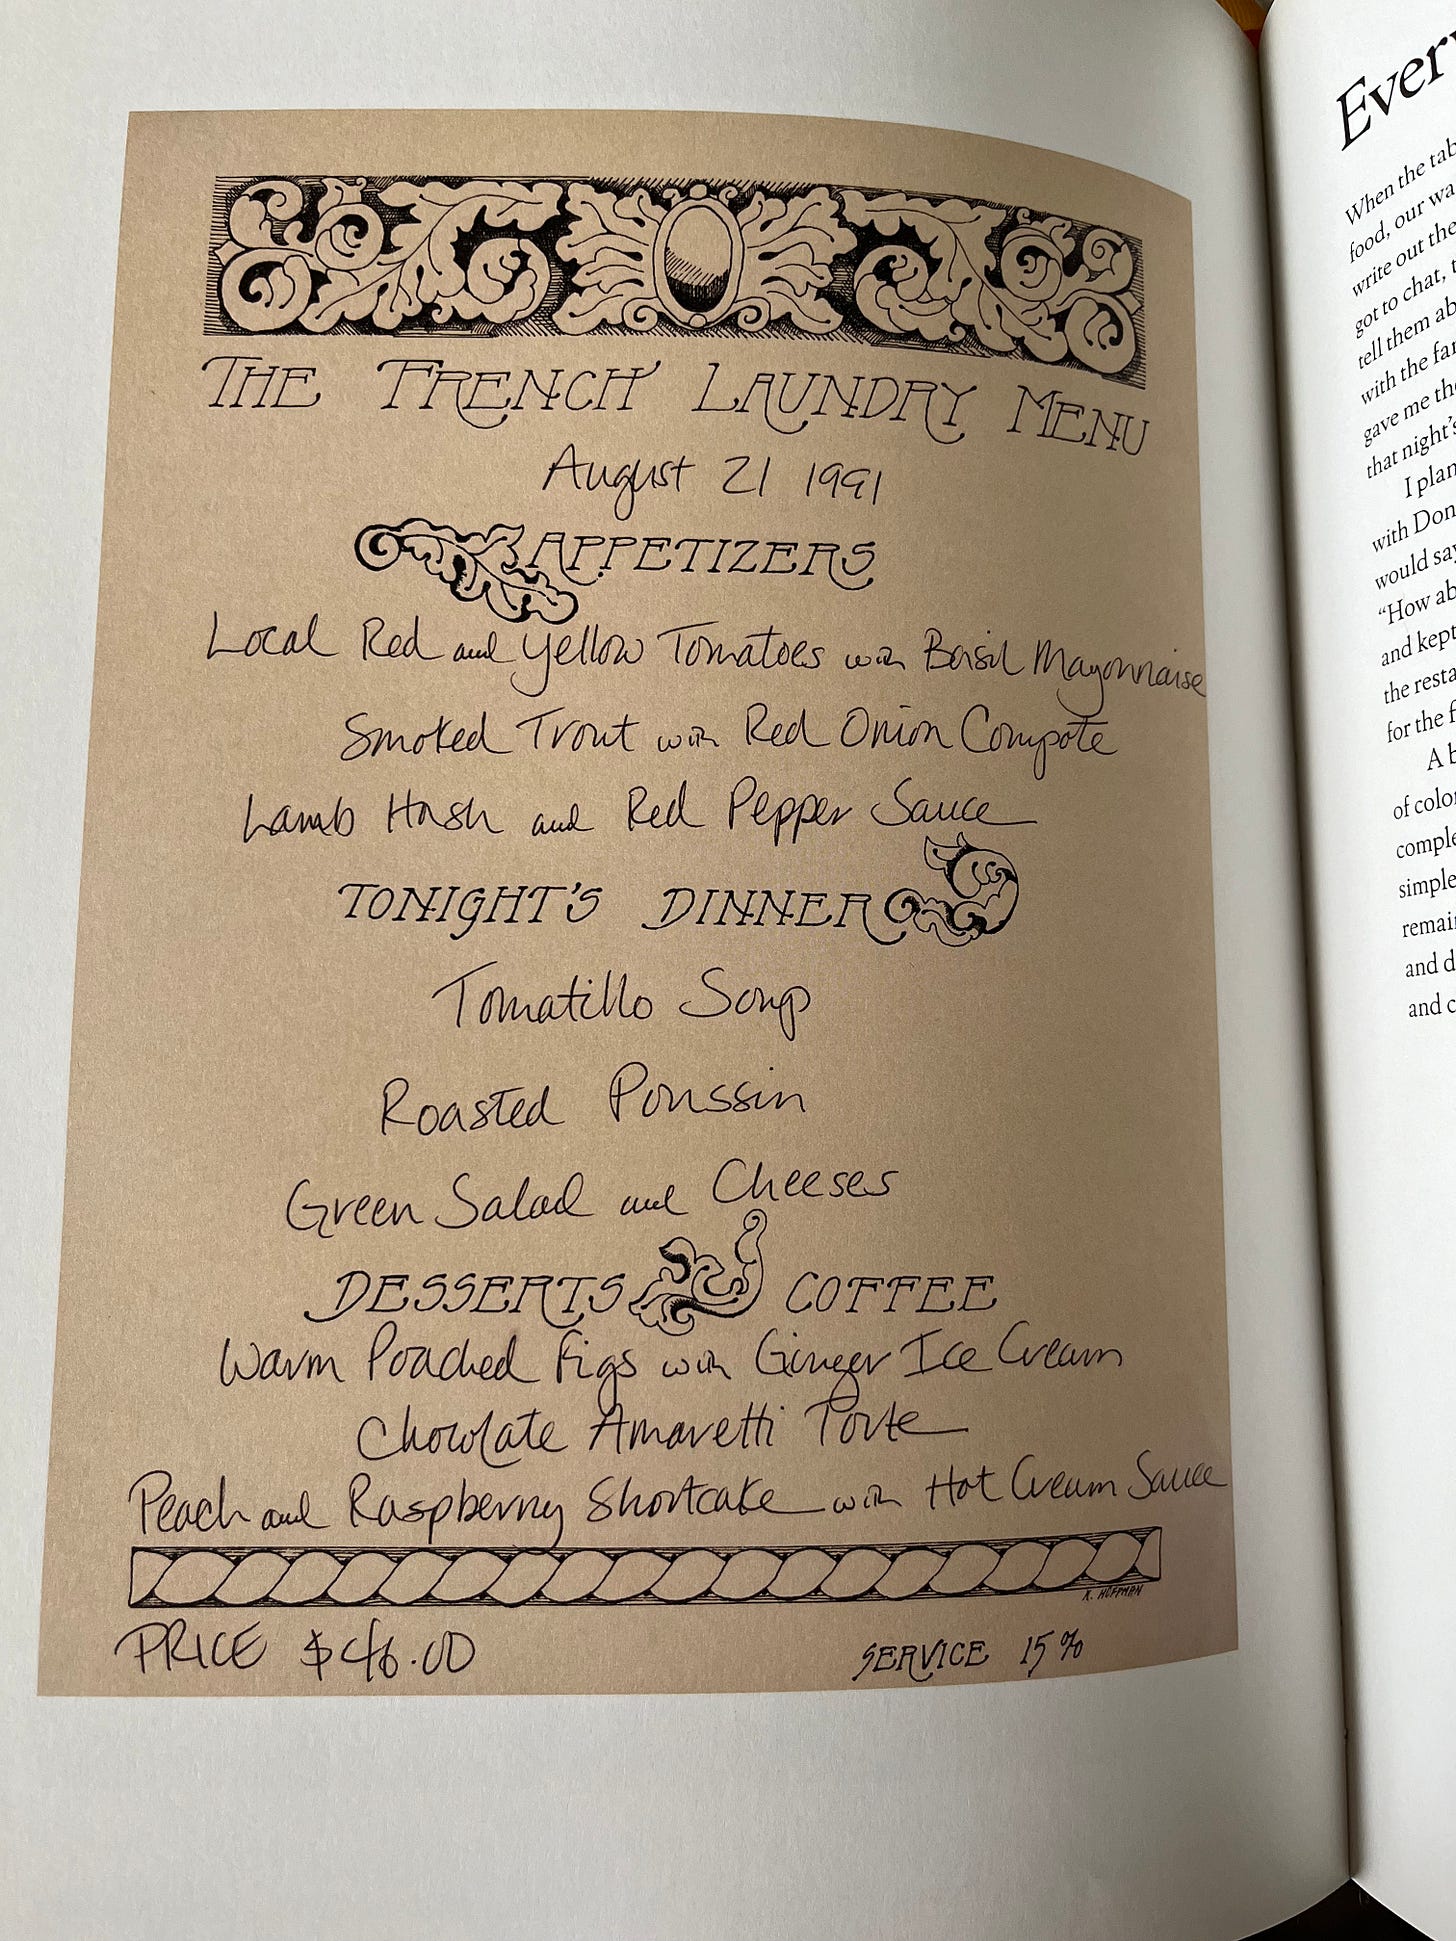 THE FRENCH LAUNDRY MENU
August 21 1991
APPETIZERS
Local Red and Yellow Tomatoes with Basil Mayonnaise
Smoked Trout with Red Onion Compote
Lamb Hash and Red Pepper Sauce
TONIGHT'S DINNER
Tomatillo Soup
Roasted Poussin
Green Salad and Cheeses
DESSERTS COFFEE
Warm Poached Figs with Ginger Ice Cream
Chocolate Amaretti Torte
Peach and Raspberry Shortcake with Hot Cream Sauce
K. HOFFMAN
PRICE $46.00
SERVICE 15%
When the
food, our
write out the
got to chat,
tell them
with the
gave me
that night's
I
with Don
would
"How
and kept
the
for the
A
of
and
and